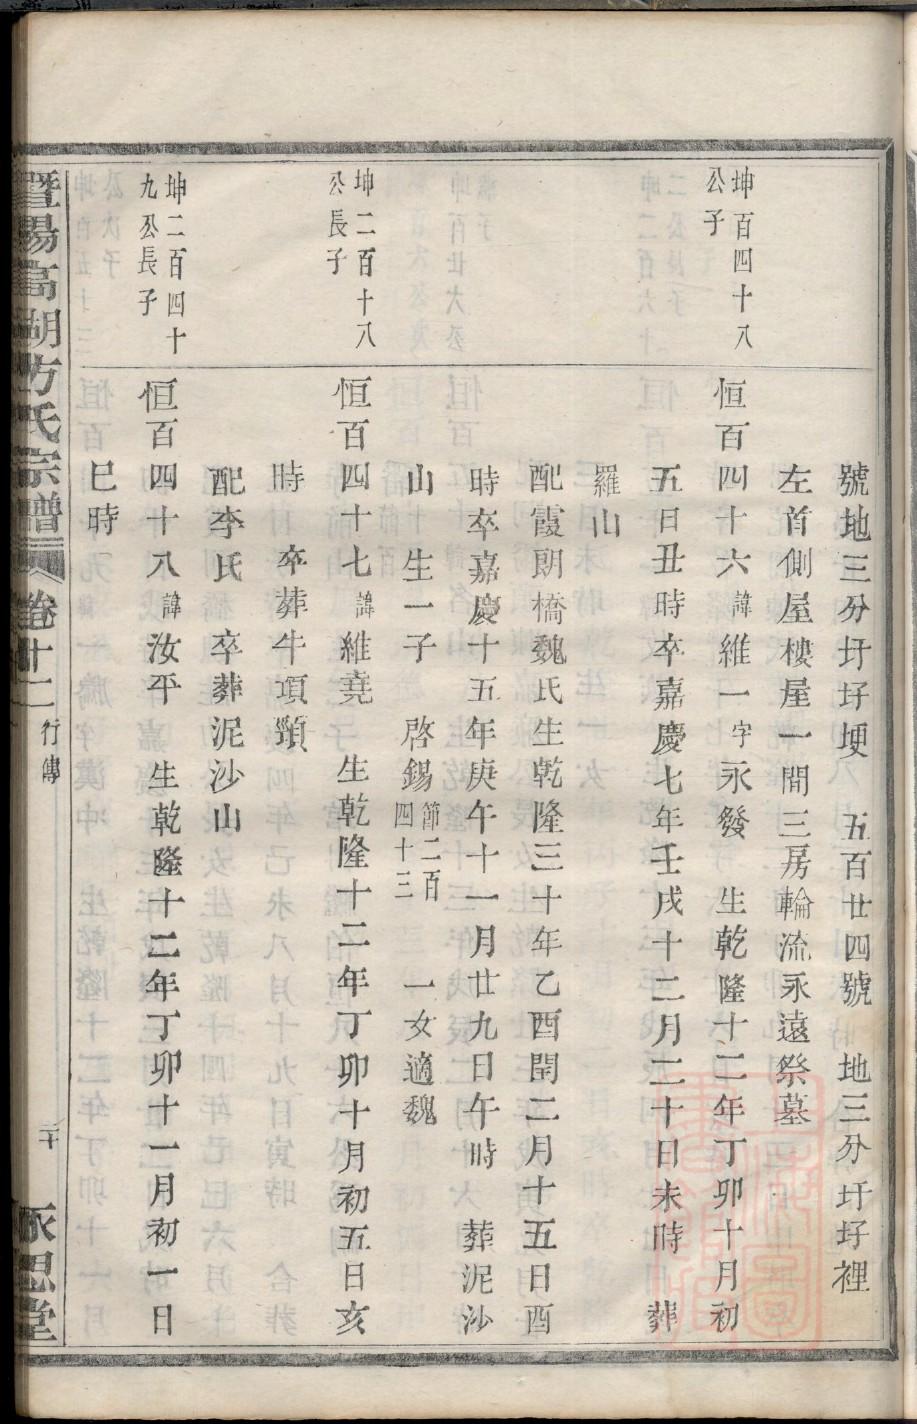 號地三分圩圩埂　五百廿四號　地三分圩圩裡
左首側屋樓屋一間三房輪流永遠祭墓
坤百四十八
公子
恒百四十六諱維一字永發　生乾隆十二年丁卯十月初
五日丑時卒嘉慶七年壬戌十二月二十日未時　葬
羅山
配霞朗橋魏氏生乾隆三十年乙酉閏二月十五日酉
時卒嘉慶十五年庚午十一月廿九日午時　葬泥沙
山　生一子　啓錫節二百四十三　一女適魏
坤二百十八
公長子
恒百四十七諱維堯　生乾隆十二年丁卯十月初五日亥
時　卒葬牛項頸
配李氏　卒葬泥沙山
坤二百四十
九公長子
恒百四十八諱汝平　生乾隆十二年丁卯十一月初一日
巳時
暨陽高湖方氏宗譜　卷十二　行傳　二十　永思堂